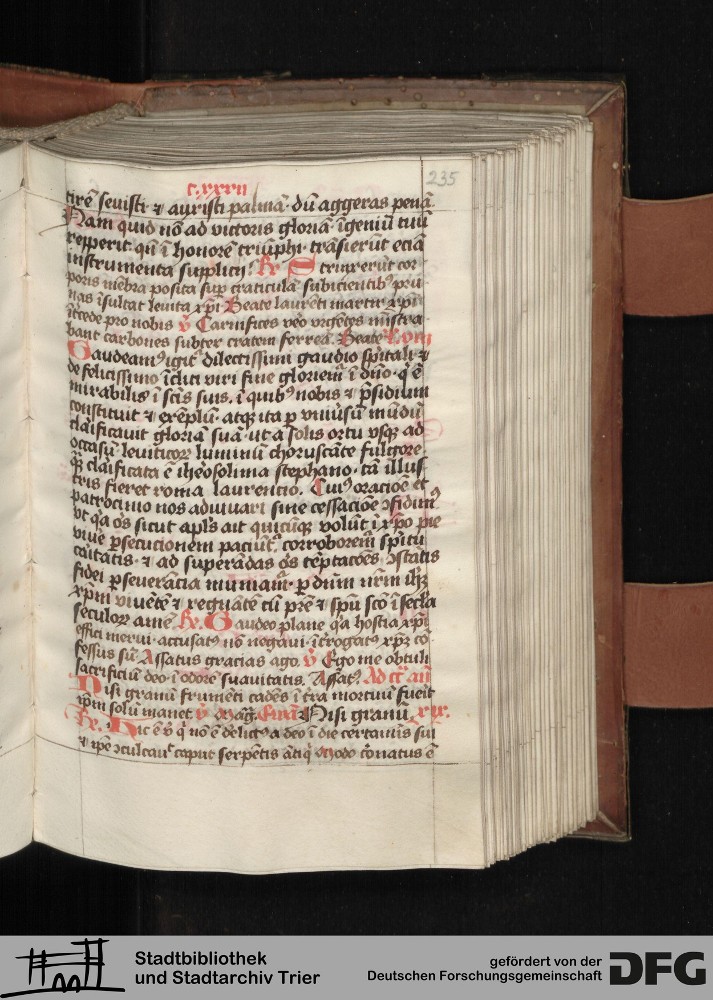 c.xxxvii
235
tirē seuisti ⁊ auxisti palmā· dū aggeras penā·
Nam quid nō ad victoris gloriā· īgeniū tuū
repperit· qn̄ ī honorē triūphi· trāsierūt eciā
instrumenta supplicij· R̄ Strinxerūt cor
poris mēbra posita suꝑ craticulā subicientibꝰ pru
nas īsultat leuita xp̄i Beate laurēti martir xp̄i
ītcede pro nobis v̄ Carnifices ꝟo vrgētes mīstra
bant carbones subter cratem ferreā. Beate
Gaudeamꝰ igit᷑ dilectissimi gaudio sp̄itali ⁊
de felicissimo īcliti viri fine gloriem᷑ ī dn̄o· q̇ ē
mirabilis ī scīs suis. ī quibꝰ nobis ⁊ p̄sidium
constituit ⁊ exēplū· atqꝫ ita ꝑ vniūsū mūdū
claificauit gloriā suā· ut a solis ortu vsqꝫ ad
occasū· leuiticoꝝ luminū choruscāte fulgore·
q̄ꝫ claificata ē iherosolima stephano· tā illus
tris fieret roma laurencio. Cuiꝰ oracōe et
patrocinio nos adiuuari sine cessacōe ↄfidimꝰ
vt qa oēs sicut apl̄s ait quicūqꝫ volūt ī xp̄o pie
viuē ꝑsecutionem paciūt᷑. corroborem᷑ sp̄itu
caitatis· ⁊ ad superādas oēs tēptacōes ↄstātis
fidei ꝑseuerācia muniam᷑· ꝑ dnm nrm ihꝫ
xp̄m viuētē ⁊ regnātē cū pr̄e ⁊ sp̄u scō ī secl̄a
seculoꝝ amē R̄. Gaudeo plane qa hostia xp̄i
effici merui· accusatꝰ nō negaui· īterogatꝰ xp̄ꝫ cō
fessus sū· Assatus gracias ago. v̄ Ego me obtuli
sacrificiū deo· ī odorē suauitatis. Assatꝰ
Nisi granū frumēti cadēs ī t̄ra mortuū fueīt
ip̄m solū manet Nisi granū
R̄. Hic ē v̄ q̇ nō ē delictꝰ a deo ī die certaminis sui
⁊ ip̄e ↄculcauī caput serpētis ātiq̇ Modo coronatus ē
Stadtbibliothek
und Stadtarchiv Trier
gefördert von der
Deutschen Forschungsgemeinschaft
DFG